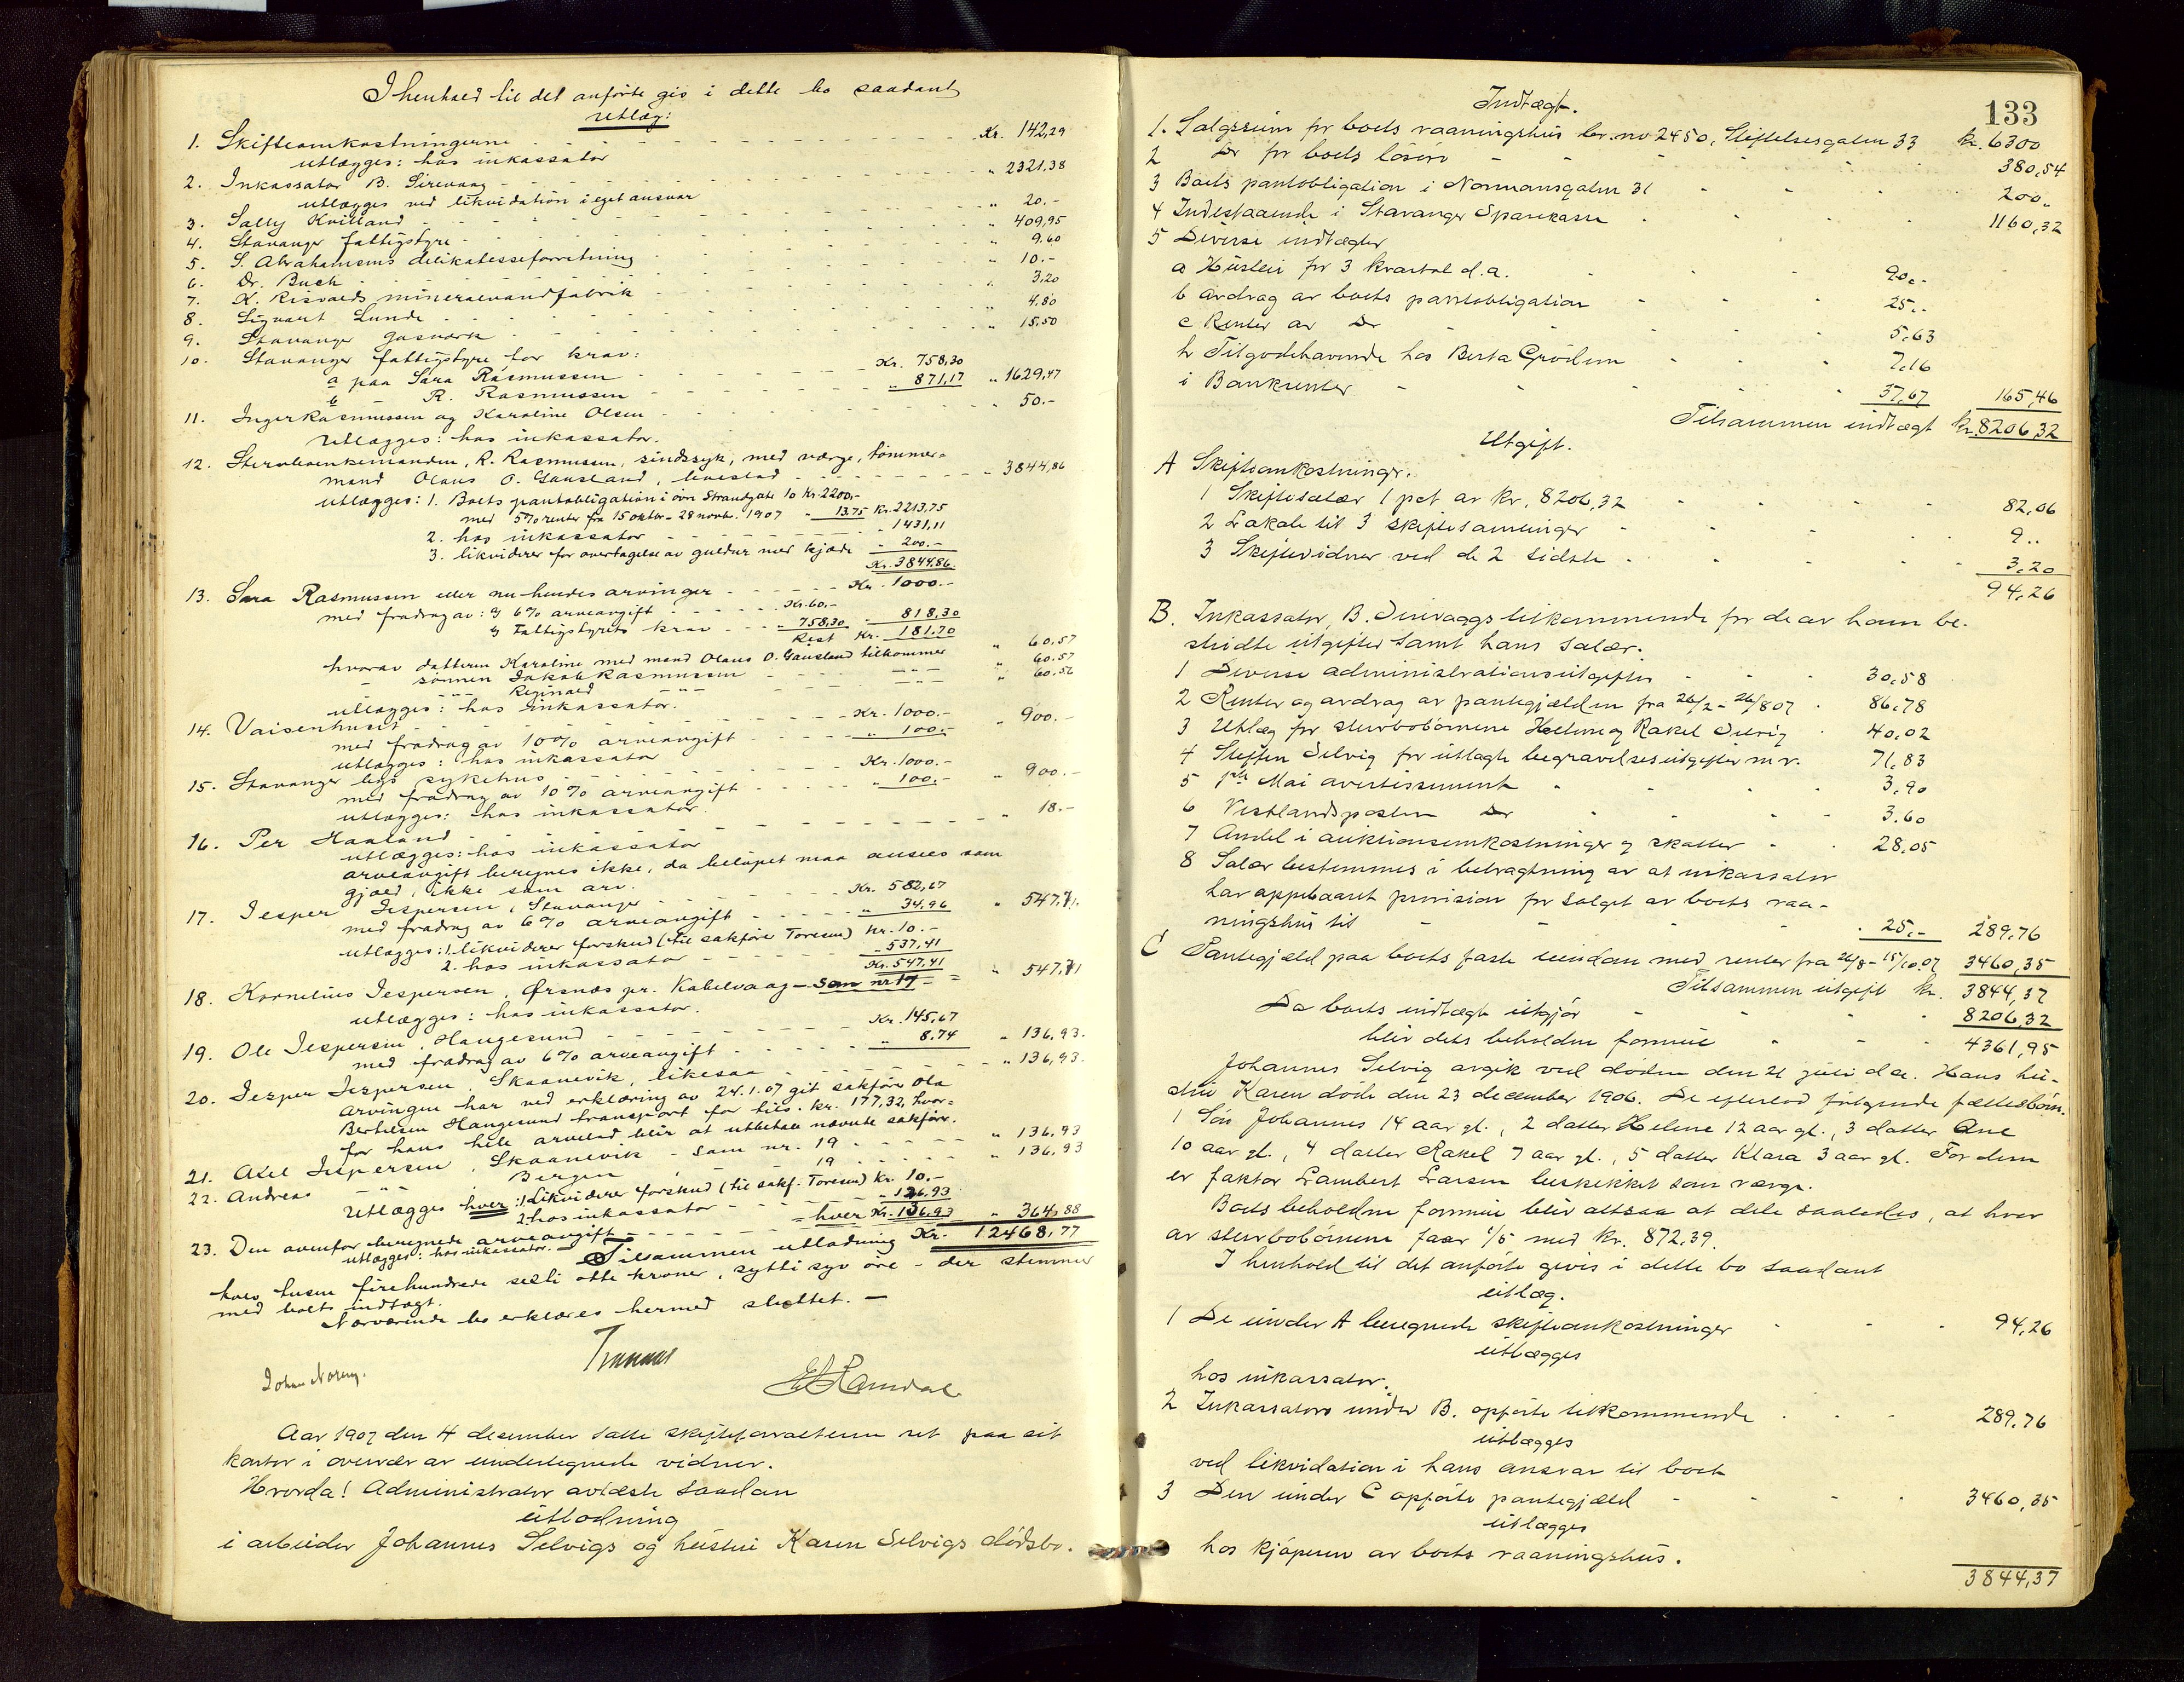 I henhold til det anførte gis i dette bo saadant
utlæg:
1. Skifteomkostningerne - - - Kr. 142,29
utlægges: hos inkassator
2. Inkassator B. Sirevaag - - - " 2321,38
utlægges ved likvidation i eget ansvar
3. Sally Kvilland - - - " 20.-
4. Stavanger fattigstyre - - - " 409,95
5. S. Abrahamsens delikatesseforretning - - - " 9.60
6. Dr. Buch - - - " 10.-
7. K. Risvolds mineralvandfabrik - - - " 3,20
8. Sigvart Lunde - - - " 4,80
9. Stavanger gasværk - - - " 15,50
10. Stavanger fattigstyre for krav:
a paa Sara Rasmussen - - - Kr. 758,30
b - R. Rasmussen - - - " 871,17 " 1629,47
11. Inger Rasmussen og Karoline Olsen - - - " 50.-
utlægges: hos inkassator.
12. Stervboenkemanden, R. Rasmussen, sindssyk, med værge, tømmer=
mand Olaus O. Gausland, boeslod - - - " 3844,86
utlægges: 1. Boets pantobligation i øvre Strandgate 10 Kr. 2200,-
med 5% renter fra 15 oktbr - 28 novb. 1907 " 13.75 Kr. 2213,75
2. hos inkassator - - - " 1431,11
3. likviderer for overtagelse av guldur med kjæde " 200.-
Kr. 3844,86.
13. Sara Rasmussen eller nu hendes arvinger - - - Kr. 1000.-
med fradrag av: a) 6% arveavgift - - - Kr. 60.-
b) Fattigstyrets krav - - - " 758,30 " 818,30
Rest Kr. 181.70
hvorav datteren Karoline med mand Olaus O. Gausland tilkommer " 60,57
- sønnen Jakob Rasmussen - - - " 60.57
- " - Reginald - " - " 60.56
utlægges: hos inkassator.
14. Vaisenhuset - - - Kr. 1000.-
med fradrag av 10% arveavgift - - - " 100.- " 900.-
utlægges: hos inkassator
15. Stavanger bys sykehus - - - Kr. 1000.-
med fradrag av 10% arveavgift - - - " 100.- " 900.-
utlægges: hos inkassator.
16. Per Haaland - - - " 18.-
utlægges: hos inkassator
arveavgift beregnes ikke, da beløpet maa ansees som
gjæld, ikke som arv.
17. Jesper Jespersen, Stavanger - - - Kr. 582,67
med fradrag av 6% arveavgift - - - " 34,96 " 547.71.
utlægges: 1. likviderer forskud (til sakfører Toresen) Kr. 10.-
2. hos inkassator - - - " 537,41
Kr. 547,41
18. Kornelius Jespersen, Ørsnæs pr. Kabelvaag - som nr 17 - = " 547.71
utlægges: hos inkassator.
19. Ole Jespersen, Haugesund - - - Kr. 145,67
med fradrag av 6% arveavgift - - - " 8,74 " 136,93.
20. Jesper Jespersen, Skaanevik, likesaa - - - " 136,93.
Arvingen har ved erklæring av 24.1.07 git sakfører Ola
Bertelsen Haugesund transport for tils. kr. 177,32, hvor=
for hans hele arvelod blir at utbetale nævnte sakfører.
21. Axel Jespersen, Skaanevik - som nr. 19 - - - " 136,93
22. Andreas - " - Bergen " 19 - - - " 136,93
Utlægges hver: 1. Likviderer forskud (til sakf. Toresen) Kr. 10.-
2. hos inkassator - - - " 126.93
hver Kr. 136.93
23. Den ovenfor beregnede arveavgift - - - " 364,88
utlægges: hos inkassator. Tilsammen utlodning Kr. 12468,77
tolv tusen firehundrede seksti otte kroner, sytti syv øre - der stemmer
med boets indtægt.
Nærværende bo erklæres hermed sluttet. -
Johan Noreng.
E. Ramdal
Aar 1907 den 4 desember satte skifteforvalteren ret paa sit
kontor i overvær av undertegnede vidner.
Hvorda! Administrator avlæste saadan
utlodning
i arbeider Johannes Selvigs og hustru Karen Selvigs dødsbo.
133
Indtægt.
1. Salgssum for boets vaaningshus br. no 2450, Stiftelsesgaten 33 kr. 6300
2 Do for boets løsøre - - - 380,54
3 Boets pantobligation i Normansgaten 31 - - - 200,-
4 Indestaaende i Stavanger Sparekasse - - - 1160,32
5 Diverse indtægter
a Husleie for 3 kvartal d.a. - - 90,-
b avdrag av boets pantobligation - - 25,-
c Renter av Do - - 5,63
h Tilgodehavende hos Berta Grödem - - 7,16
i Bankrenter - - - 37,67 165,46
Tilsammen indtægt kr. 8206,32
Utgift.
A Skifteomkostninger.
1 Skiftesalær 1 pct av kr. 8206,32 - - - 82,06
2 Lokale til 3 skiftesamlinger - - - 9,-
3 Skiftevidner ved de 2 sidste - - - 3,20
94,26
B. Inkassator, B. Sirevaags tilkommende for de av ham be-
stridte utgifter samt hans salær.
1 Diverse administrationsutgifter - - 30,58
2 Renter og avdrag av pantegjælden fra 26/2 - 26/8 07 - 86,78
3 Utlæg for stervbobørnene Helene og Rakel Selvig - 40,02
4 Steffen Selvig for utlagte begravelsesutgifter m.v. 71,83
5 1ste Mai avertissement - - - 3,90
6 Vestlandsposten Do - - - 3.60
7 Andel i auktionsomkostninger og skatter - - 28,05
8 Salær bestemmes i betragtning av at inkassator
har oppebaaret provision for salget av boets vaa-
ningshus til - - - 25,- 289,76
C Pantegjæld paa boets faste eiendom med renter fra 26/8 - 15/10 07 3460,35
Tilsammen utgift kr. 3844,37
Da boets indtægt utgjør - - - 8206,32
blir dets beholdne formue - - - 4361,95
Johannes Selvig avgik ved døden den 21 juli d.a. Hans hu-
stru Karen døde den 23 december 1906. De efterlod følgende fællesbørn.
1 Søn Johannes 14 aar gl., 2 datter Helene 12 aar gl., 3 datter Ane
10 aar gl., 4 datter Rakel 7 aar gl., 5 datter Klara 3 aar gl. For dem
er faktor Lambert Larsen beskikket som værge.
Boets beholdne formue blir altsaa at dele saaledes, at hver
av stervbobørnene faar 1/5 med kr. 872,39.
I henhold til det anførte givis i dette bo saadant
utlæg.
1 De under A beregnede skifteomkostninger - - - 94,26
utlægges
hos inkassator.
2 Inkassators under B. opførte tilkommende - - - 289,76
utlægges
ved likvidation i hans ansvar til boet
3 Den under C opførte pantegjæld - - - 3460,35
utlægges
hos kjøperen av boets vaaningshus.
3844,37